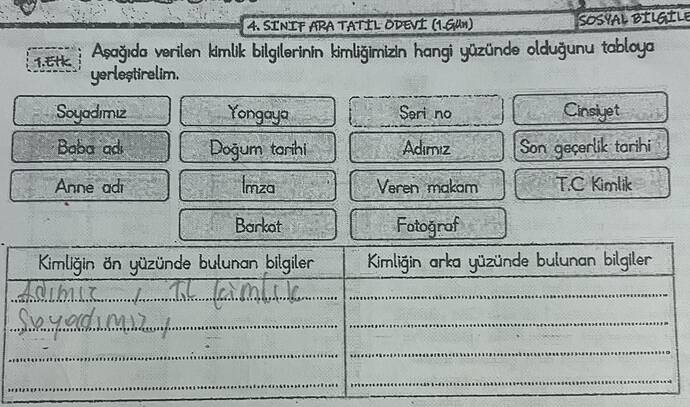 4. SINIF ARA TATİL ÖDEVİ (1.Gün)
SOSYAL BİLGİLE
1.Etk. Aşağıda verilen kimlik bilgilerinin kimliğimizin hangi yüzünde olduğunu tabloya
yerleştirelim.
Soyadımız Yongaya Seri no Cinsiyet
Baba adı Doğum tarihi Adımız Son geçerlik tarihi
Anne adı İmza Veren makam T.C Kimlik
Barkot Fotoğraf
Kimliğin ön yüzünde bulunan bilgiler Kimliğin arka yüzünde bulunan bilgiler
Adımız , kimlik
Soyadımız,